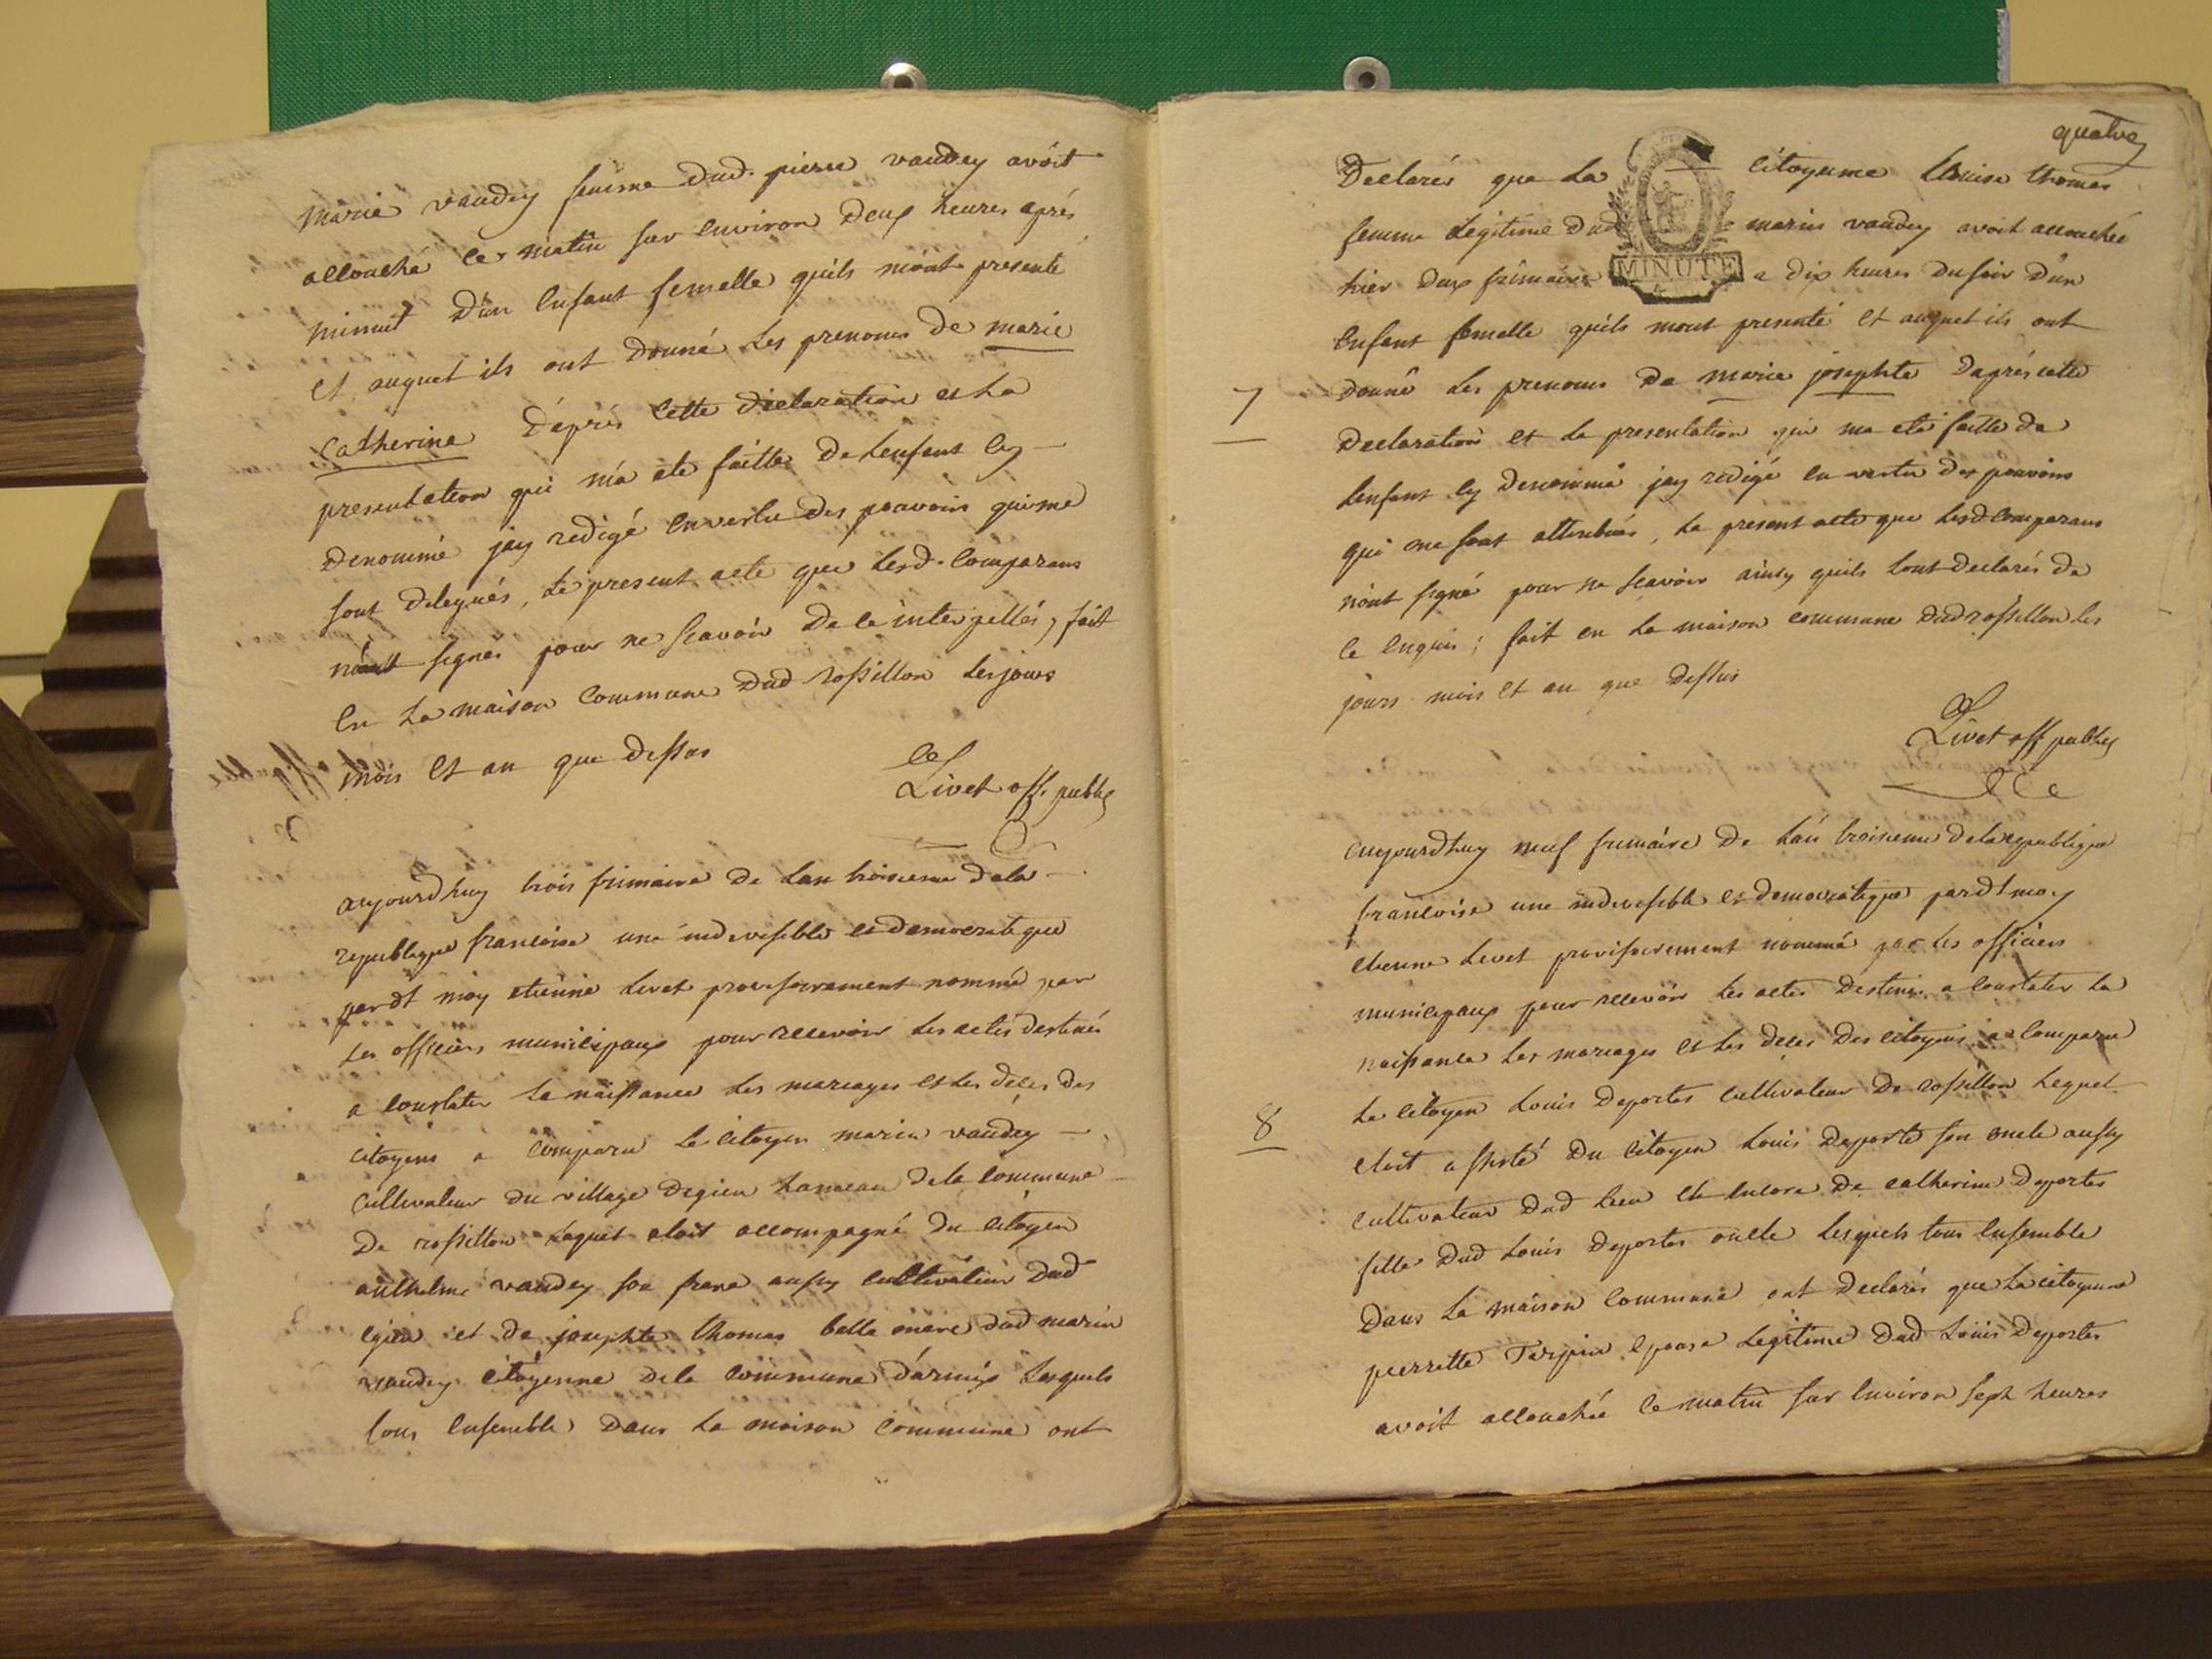 marie vaudey femme dud. pierre vaudey avoit
accouché ce matin sur environ deux heures aprés
minuit d'un enfant femelle quils mont presenté
et auquel ils ont donné les prenoms de marie
catherine d'aprés cette declaration et la
presentation qui m'a eté faitte de lenfant cy
denommé jay redigé en vertu des pouvoirs qui me
sont delegués, le present acte que lesd. comparans
n'ont signés pour ne scavoir de ce interpellés, fait
en la maison commune dud rossillon les jours
mois et an que dessus
Livet off. public
aujourdhuy trois frimaire de lan troisieme dela
republique francoise une indivisible et democratique
pardt moy etienne Livet provisoirement nommé par
les officiers municipaux pour recevoir les actes destinés
a constater la naissance les mariages et les déces des
citoyens a comparu le citoyen marin vaudey
cultivateur du village degieu hameau dela commune
de rossillon lequel etoit accompagné du citoyen
anthelme vaudey son frere aussy cultivateur dud
egieu et de josephte thomas belle mere dud marin
vaudey citoyenne dela commune d'armix lesquels
tous ensemble dans la maison commune ont
quatre
Declarés que la citoyenne Louise thomas
femme legitime dud marin vaudey avoit accouchée
MINUTE
hier deux frimaire a dix heures du soir d'un
enfant femelle quils mont presenté et auquel ils ont
7 donné les prenoms de marie josephte daprés cette
declaration et la presentation qui ma eté faitte de
lenfant cy denommé jay redigé en vertu des pouvoirs
qui me sont attribués, le present acte que lesd comparans
n'ont signé pour ne scavoir ainsy quils lont declarés de
ce enquis; fait en la maison commune dud rossillon les
jours mois et an que dessus
Livet off public
aujourdhuy neuf frimaire de lan troisieme dela republique
francoise une indivisible et democratique pardt moy
etienne Livet provisoirement nommé par les officiers
municipaux pour recevoir les actes destinés a constater la
naissance les mariages et les déces des citoyens a comparu
8 le citoyen Louis Deportes cultivateur de rossillon lequel
etoit assisté du citoyen Louis Deporte son oncle aussy
cultivateur dud lieu et encore de catherine Deportes
fille dud Louis Deportes oncle lesquels tous ensemble
dans la maison commune ont declarés que la citoyenne
pierrette Tarpin epouse legitime dud Louis Deportes
avoit accouchée ce matin sur environ sept heures